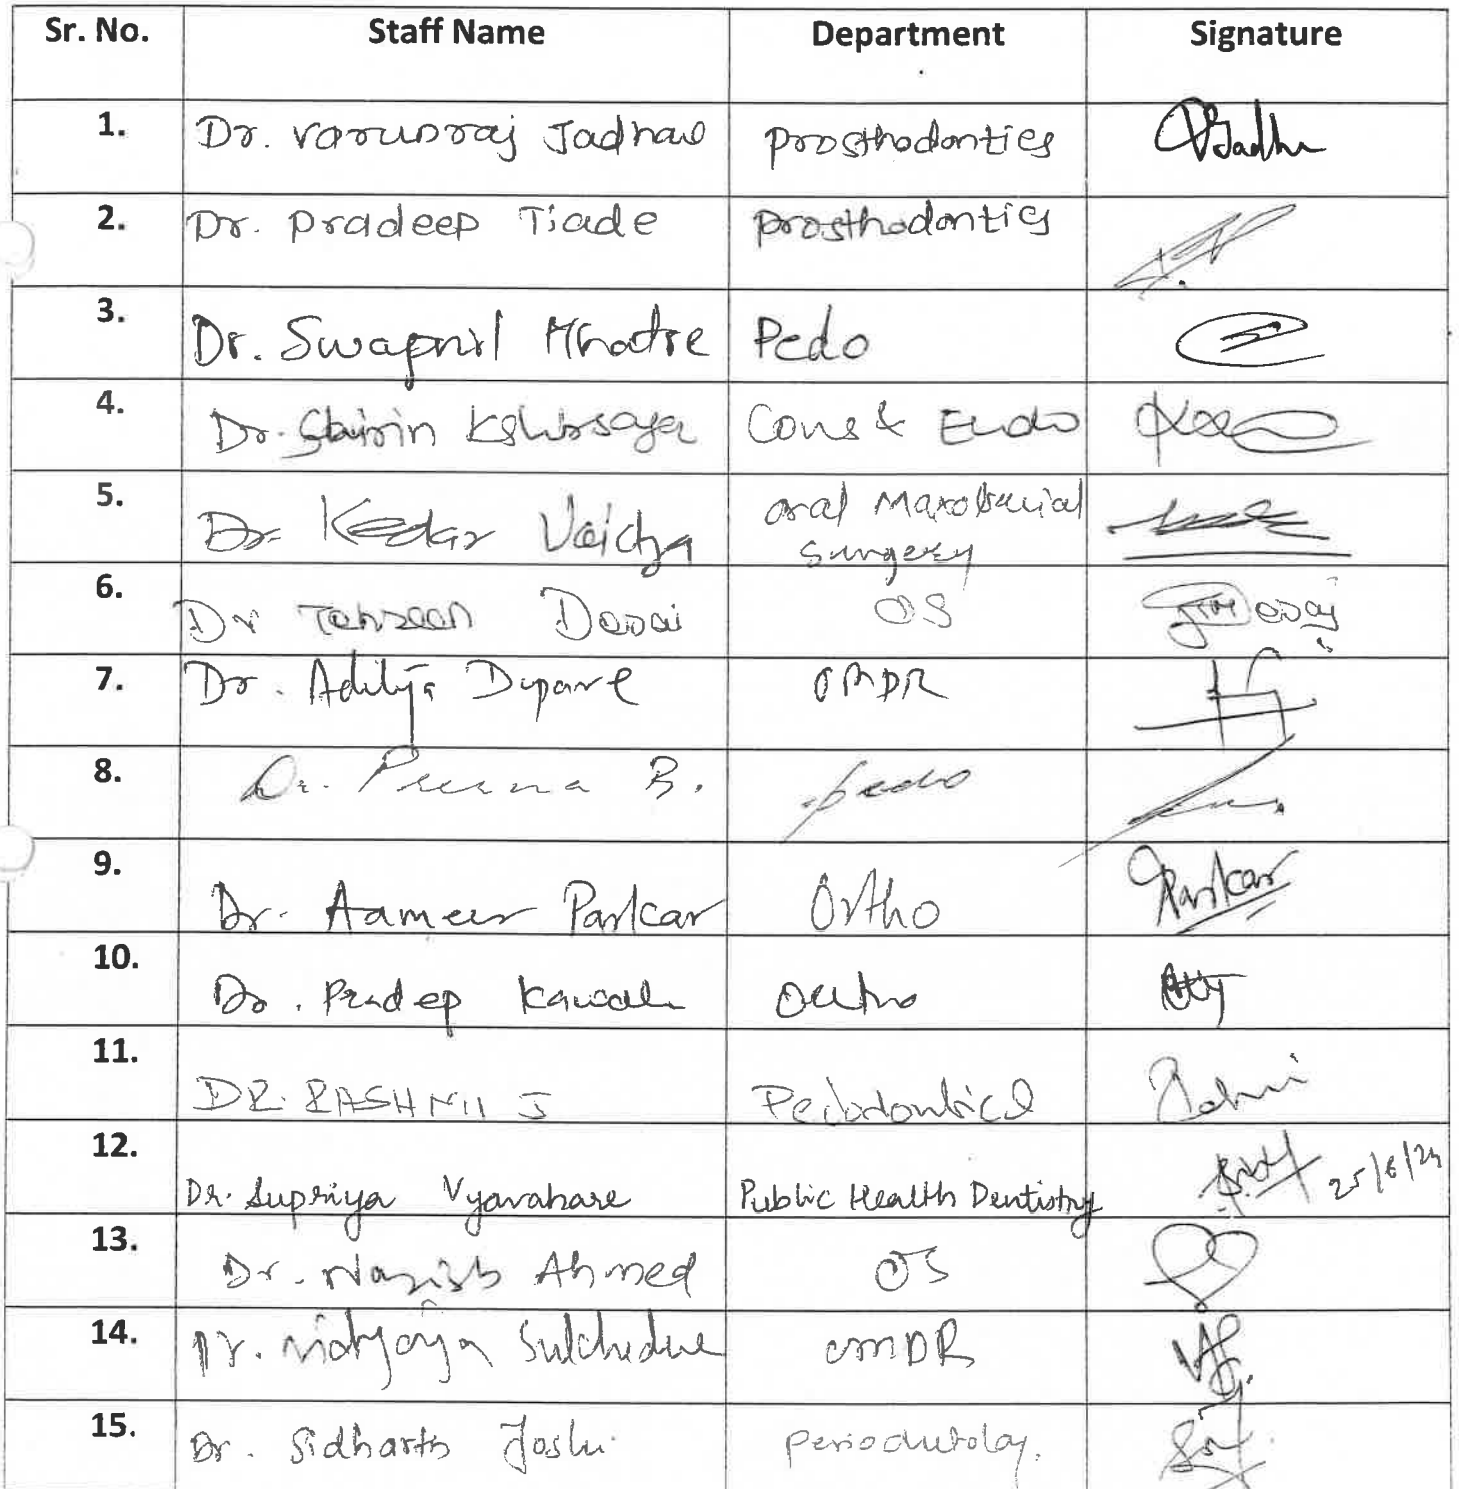 Sr. No. Staff Name Department Signature
1. Dr. Varunraj Jadhav Prosthodontics
2. Dr. Pradeep Tiade Prosthodontics
3. Dr. Swapnil Mhatre Pedo
4. Dr. Kshirsagar Cons & Endo
5. Dr. Kedar Vaidya Oral Maxofacial
Surgery
6. Dr Tehzeen Desai OS Desai
7. Dr. Aditya Dupare OMDR
8. Dr. Purna B. pedo
9. Dr. Aameer Parkar Ortho Parkar
10. Dr. Pradep Kawale Ortho
11. DR. RASHMII J Pedodontics
12. Dr. Supriya Vyavahare Public Health Dentistry 25/6/24
13. Dr. Nazish Ahmed OS
14. Dr. OMDR
15. Dr. Sidharth Joshi Periodontology.